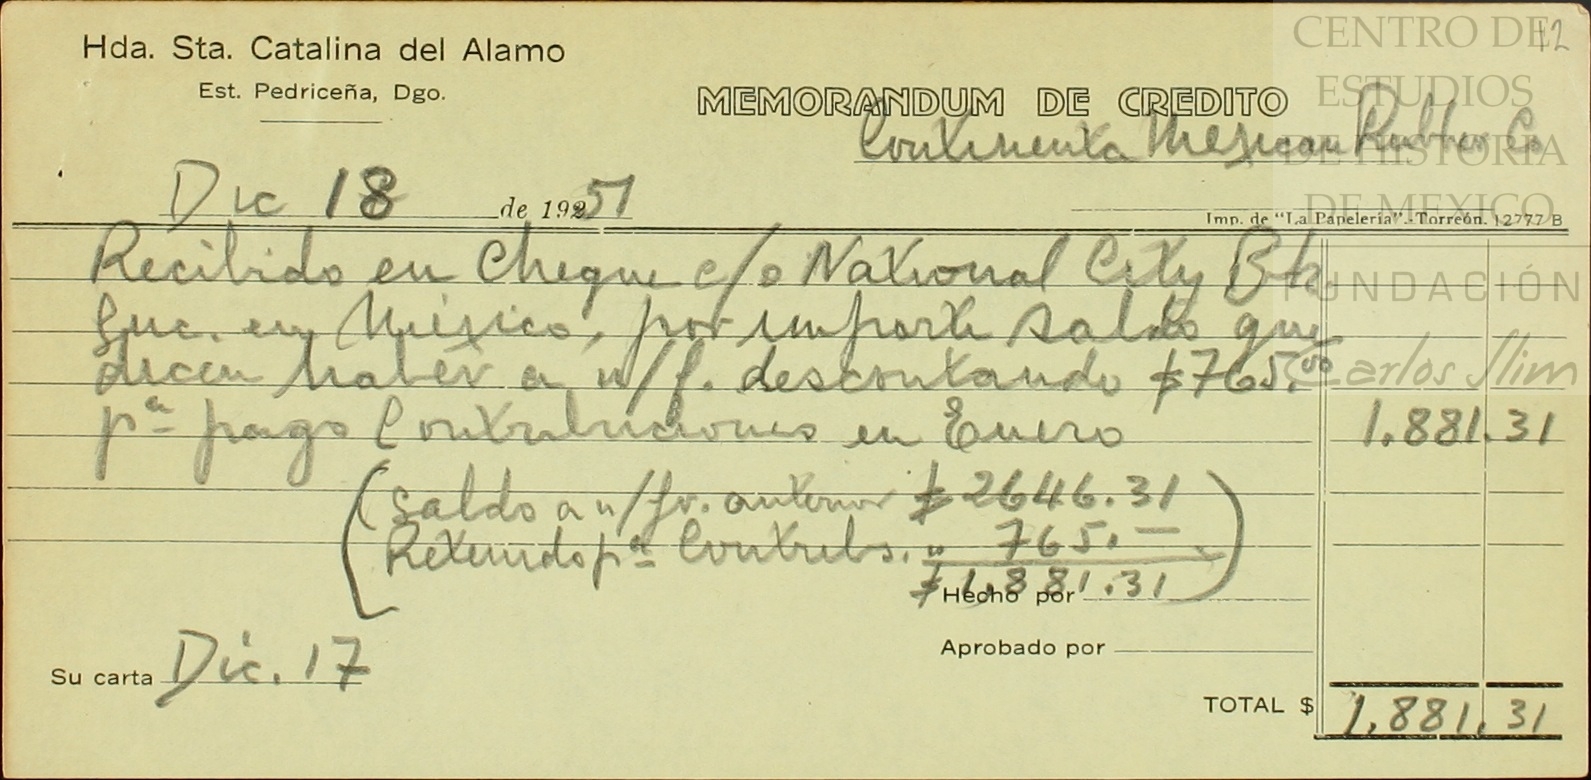 Hda. Sta. Catalina del Alamo
Est. Pedriceña, Dgo.
12
MEMORANDUM DE CREDITO
Continenta Mexican Rubber Co
Dic 18 de 19251
Imp. de "La Papelería".-Torreón. 12777 B
Recibido en Cheque c/o National City Bk
Suc. en México, por importe saldo que
dicen haber a n/f. descontando $765.00
pª pago Contribuciones en Enero 1.881.31
(Saldo a n/fv. anterior $2646.31
Retenido pª Contribs. " 765.—)
$1.881.31
Hecho por
Aprobado por
Su carta Dic. 17
TOTAL $ 1.881.31
CENTRO DE
ESTUDIOS
DE HISTORIA
DE MEXICO
FUNDACIÓN
Carlos Slim